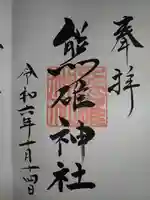 奉拝
熊碓神社
令和六年十月十四日